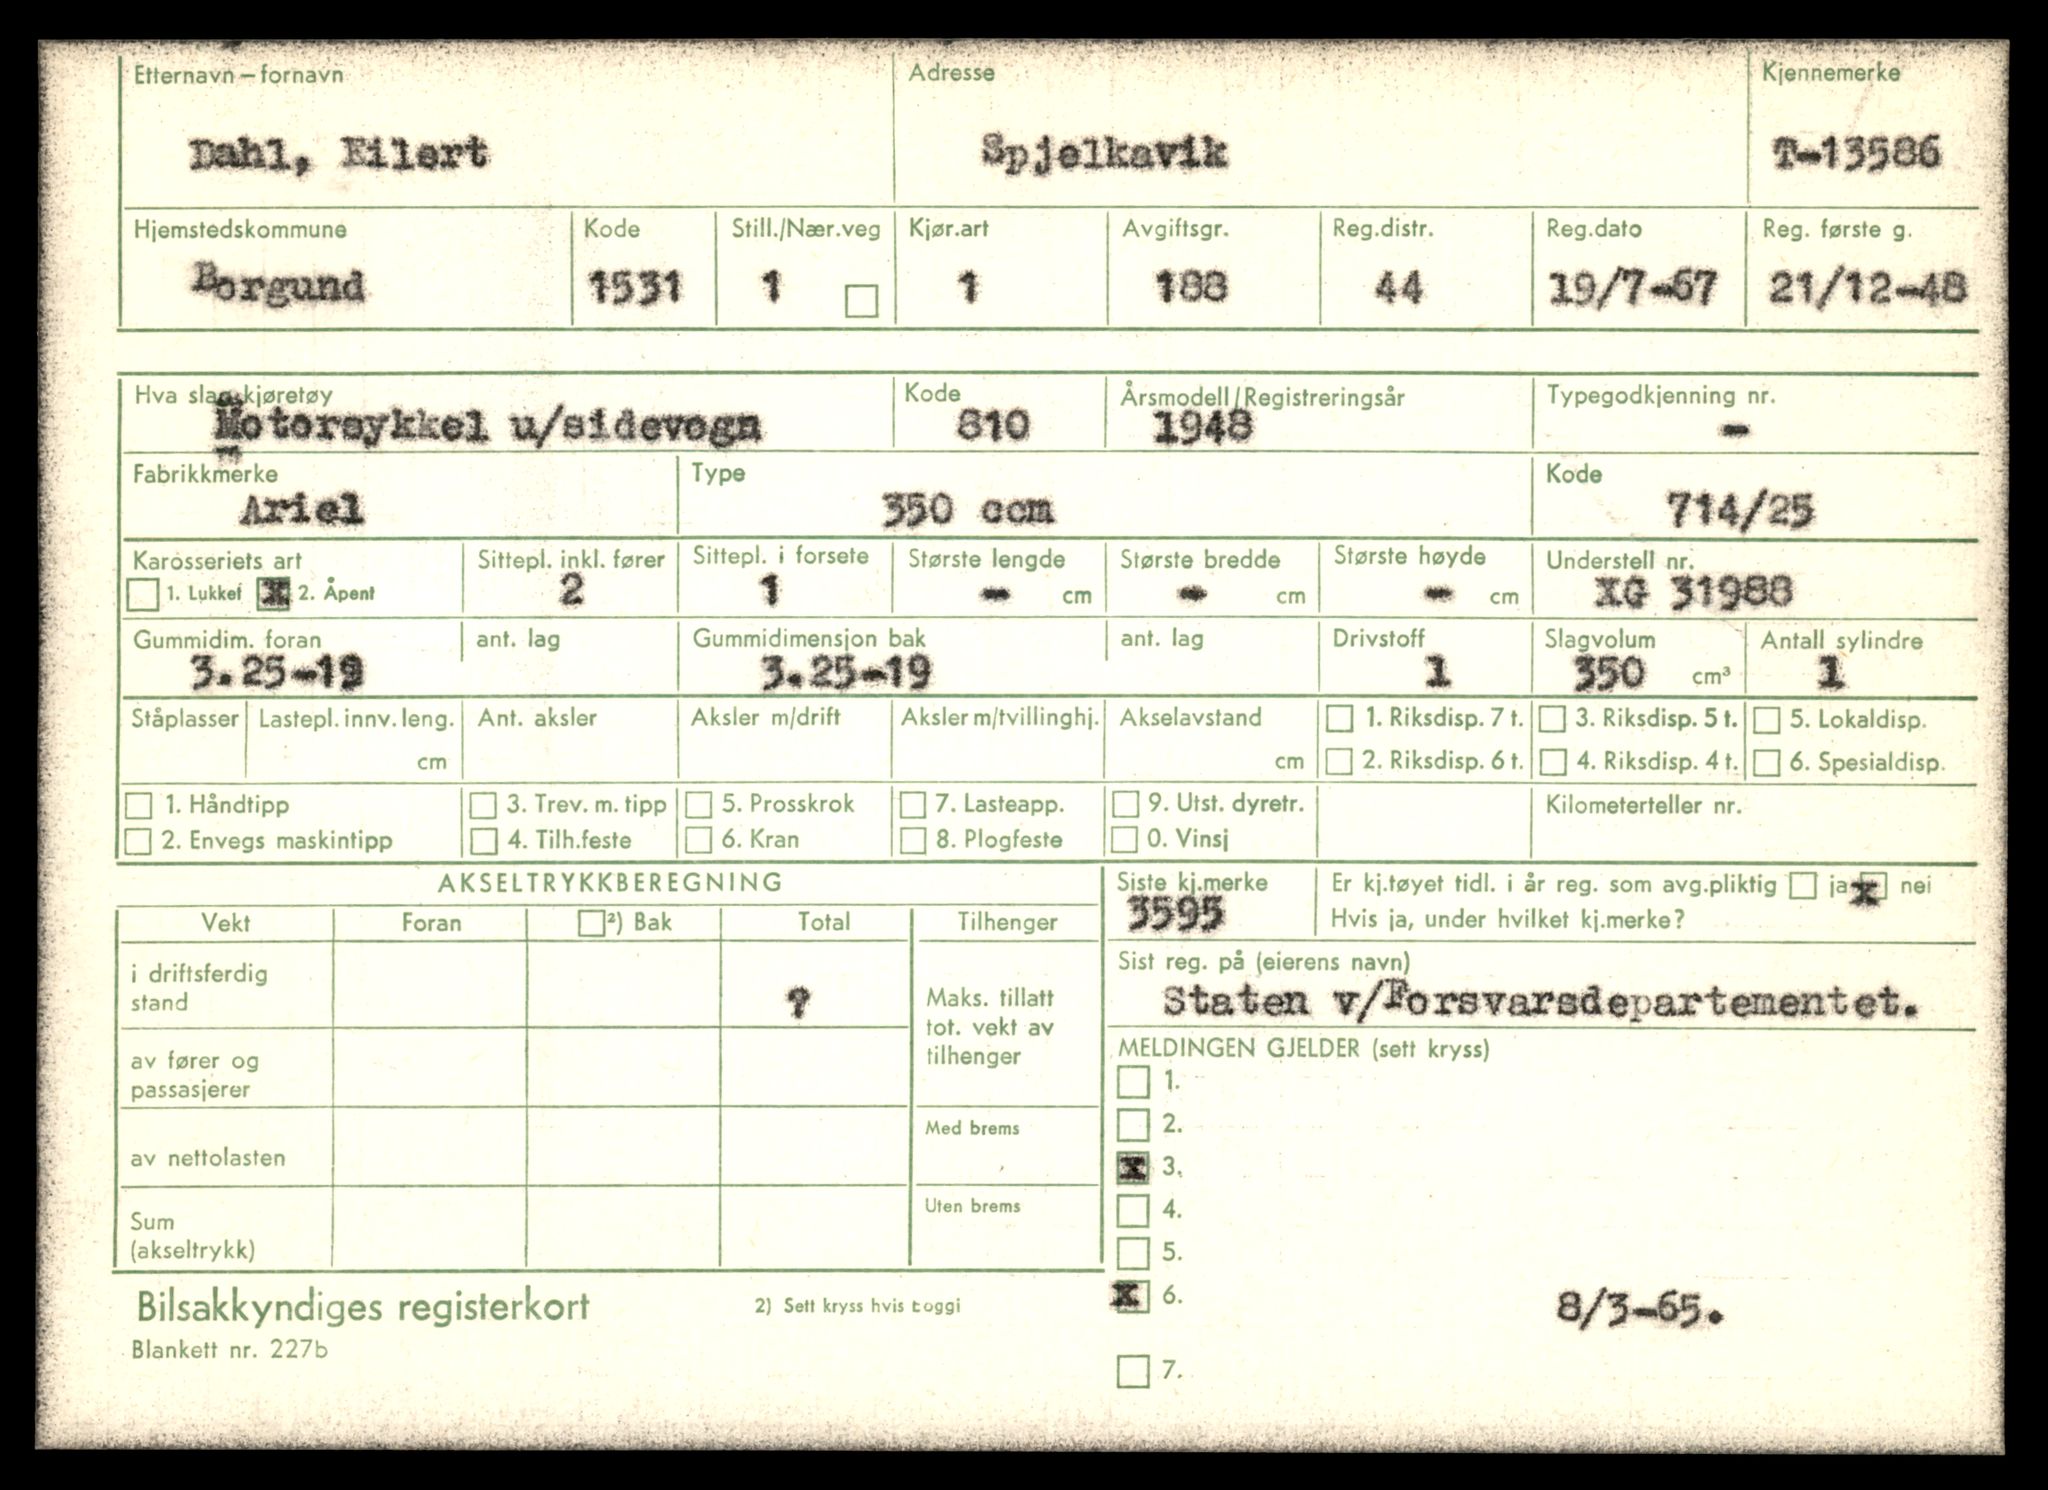 Etternavn – fornavn Adresse Kjennemerke
Dahl, Eilert Spjelkavik T-13586
Hjemstedskommune Kode Still./Nær.veg Kjør.art Avgiftsgr. Reg.distr. Reg.dato Reg. første g.
Borgund 1531 1 1 188 44 19/7-67 21/12-48
Hva slag kjøretøy Kode Årsmodell/Registreringsår Typegodkjenning nr.
Motorsykkel u/sidevogn 810 1948 -
Fabrikkmerke Type Kode
Ariel 350 ccm 714/25
Karosseriets art Sittepl. inkl. fører Sittepl. i forsete Største lengde Største bredde Største høyde Understell nr.
1. Lukket X 2. Åpent 2 1 - cm - cm - cm XG 31988
Gummidim. foran ant. lag Gummidimensjon bak ant. lag Drivstoff Slagvolum Antall sylindre
3.25-19 3.25-19 1 350 cm³ 1
Ståplasser Lastepl. innv. leng. Ant. aksler Aksler m/drift Aksler m/tvillinghj. Akselavstand 1. Riksdisp. 7 t. 3. Riksdisp. 5 t. 5. Lokaldisp.
cm cm 2. Riksdisp. 6 t. 4. Riksdisp. 4 t. 6. Spesialdisp.
1. Håndtipp 3. Trev. m. tipp 5. Prosskrok 7. Lasteapp. 9. Utst. dyretr. Kilometerteller nr.
2. Envegs maskintipp 4. Tilh.feste 6. Kran 8. Plogfeste 0. Vinsj
AKSELTRYKKBEREGNING
Vekt Foran ²) Bak Total Tilhenger
i driftsferdig
stand ?
Maks. tillatt
tot. vekt av
tilhenger
av fører og
passasjerer
Med brems
av nettolasten
Uten brems
Sum
(akseltrykk)
Siste kj.merke Er kj.tøyet tidl. i år reg. som avg.pliktig ja X nei
3595 Hvis ja, under hvilket kj.merke?
Sist reg. på (eierens navn)
Staten v/Forsvarsdepartementet.
MELDINGEN GJELDER (sett kryss)
1.
2.
X 3.
4.
5.
X 6. 8/3-65.
7.
Bilsakkyndiges registerkort 2) Sett kryss hvis boggi
Blankett nr. 227b